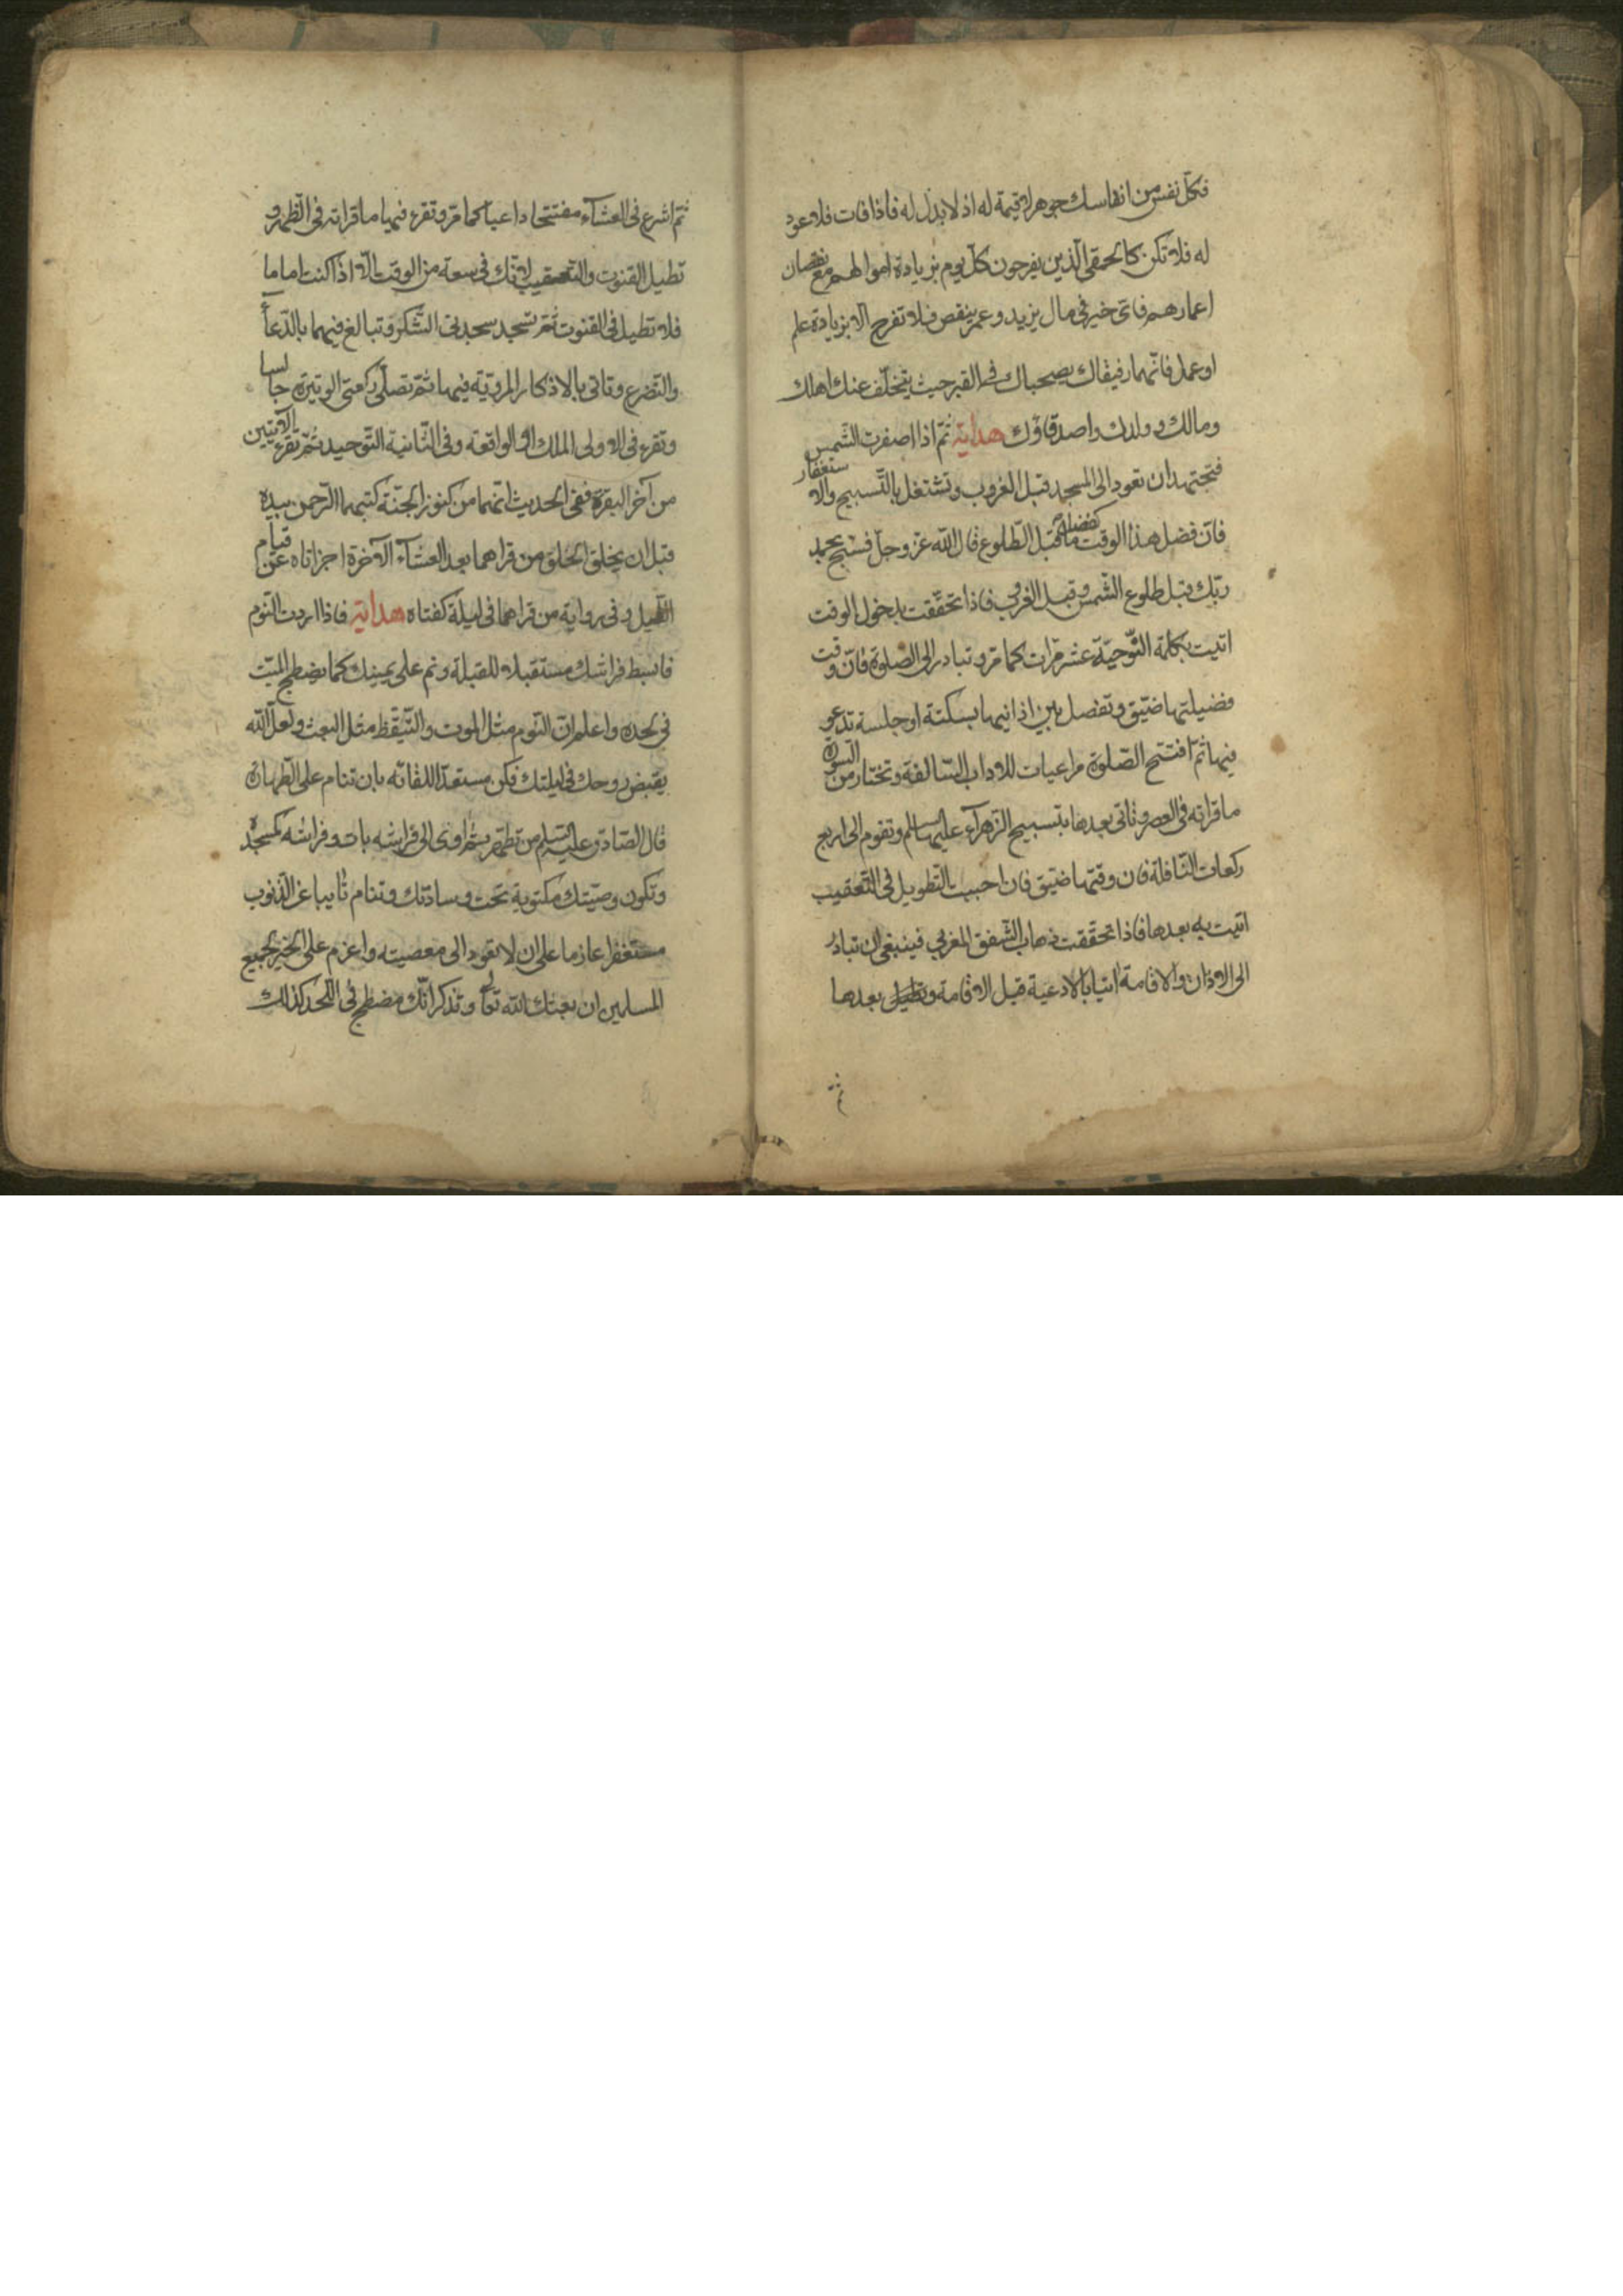 فكلّ نفس من انفاسك جوهرة لا قيمة له اذ لا بدل له فاذا فات فلا عود
له فلا تكن كالحمقى الّذين يفرحون كلّ يوم بزيادة اموالهم مع نقصان
اعمارهم فاىّ خير فى مال يزيد وعمر ينقص فلا تفرح الّا بزيادة علم
او عمل فانّهما رفيقاك يصحباك فى القبر حيث يتخلّف عنك اهلك
ومالك وولدك واصدقاؤك هداية ثمّ اذا اصفرت الشّمس
فتجتهد ان تعود الى المسجد قبل الغروب وتشتغل بالتّسبيح والاستغفار
فانّ فضل هذا الوقت كفضل ما قبل الطّلوع قال اللّه عزّ وجلّ فسبّح بحمد
ربّك قبل طلوع الشّمس وقبل الغروب فاذا تحقّقت بدخول الوقت
اتيت بكلمة التّوحيد عشر مرّات كما مرّ وتبادر الى الصلوة فانّ وقت
فضيلتها ضيّق وتفصل بين اذانيها بسكتة او جلسة تدعو
فيها ثمّ افتتح الصّلوة مراعيات للاداب السّالفة وتختار من السّورة
ما قراته فى العصر وتاتى بعدها بتسبيح الزّهرآء عليها السلام وتقوم الى اربع
ركعات النّافلة فان وقتها ضيّق فان احببت التّطويل فى التّعقيب
اتيت به بعدها فاذا تحقّقت ذهاب الشّفق المغربى فينبغى ان تبادر
الى الاذان والاقامة اتيا بالادعية قبل الاقامة وبعدها
ثمّ
ثمّ اشرع فى العشآء مفتتحا داعيا كما مرّ وتقرء فيها ما قراته فى الظّهر و
تطيل القنوت والتّعقيب لانّك فى سعة من الوقت الّا اذا كنت اماما
فلا تطيل فى القنوت ثمّ تسجد سجدتى الشّكر وتبالغ فيهما بالدّعآء
والتّضرع وتاتى بالاذكار المرويّة فيهما ثمّ تصلّى ركعتى الوتيرة جالسا
وتقرء فى الاولى الملك او الواقعة وفى الثّانية التّوحيد ثمّ تقرء الآيتين
من آخر البقرة ففى الحديث انّهما من كنوز الجنّة كتبهما الرّحمن بيده
قبل ان يخلق الخلق من قراهما بعد العشآء الآخرة اجزاتاه عن قيام
اللّيل وفى رواية من قراهما فى ليلة كفتاه هداية فاذا اردت النّوم
فابسط فراشك مستقبلا للقبلة ونم على يمينك كما يضطجع الميّت
فى لحده واعلم انّ النّوم مثل الموت والتّيقّظ مثل البعث ولعلّ اللّه
يقبض روحك فى ليلتك فكن مستعدّا للقائه بان تنام على الطّهارة
قال الصّادق عليه السّلام من تطهّر ثم اوى الى فراشه بات وفراشه كمسجده
وتكون وصيّتك مكتوبة تحت وسادتك وتنام تايبا عن الذّنوب
مستغفرا عازما على ان لا تعود الى معصيته واعزم على الخير لجميع
المسلمين ان بعثك اللّه تعالى وتذكر انّك مضطجع فى اللّحد كذلك